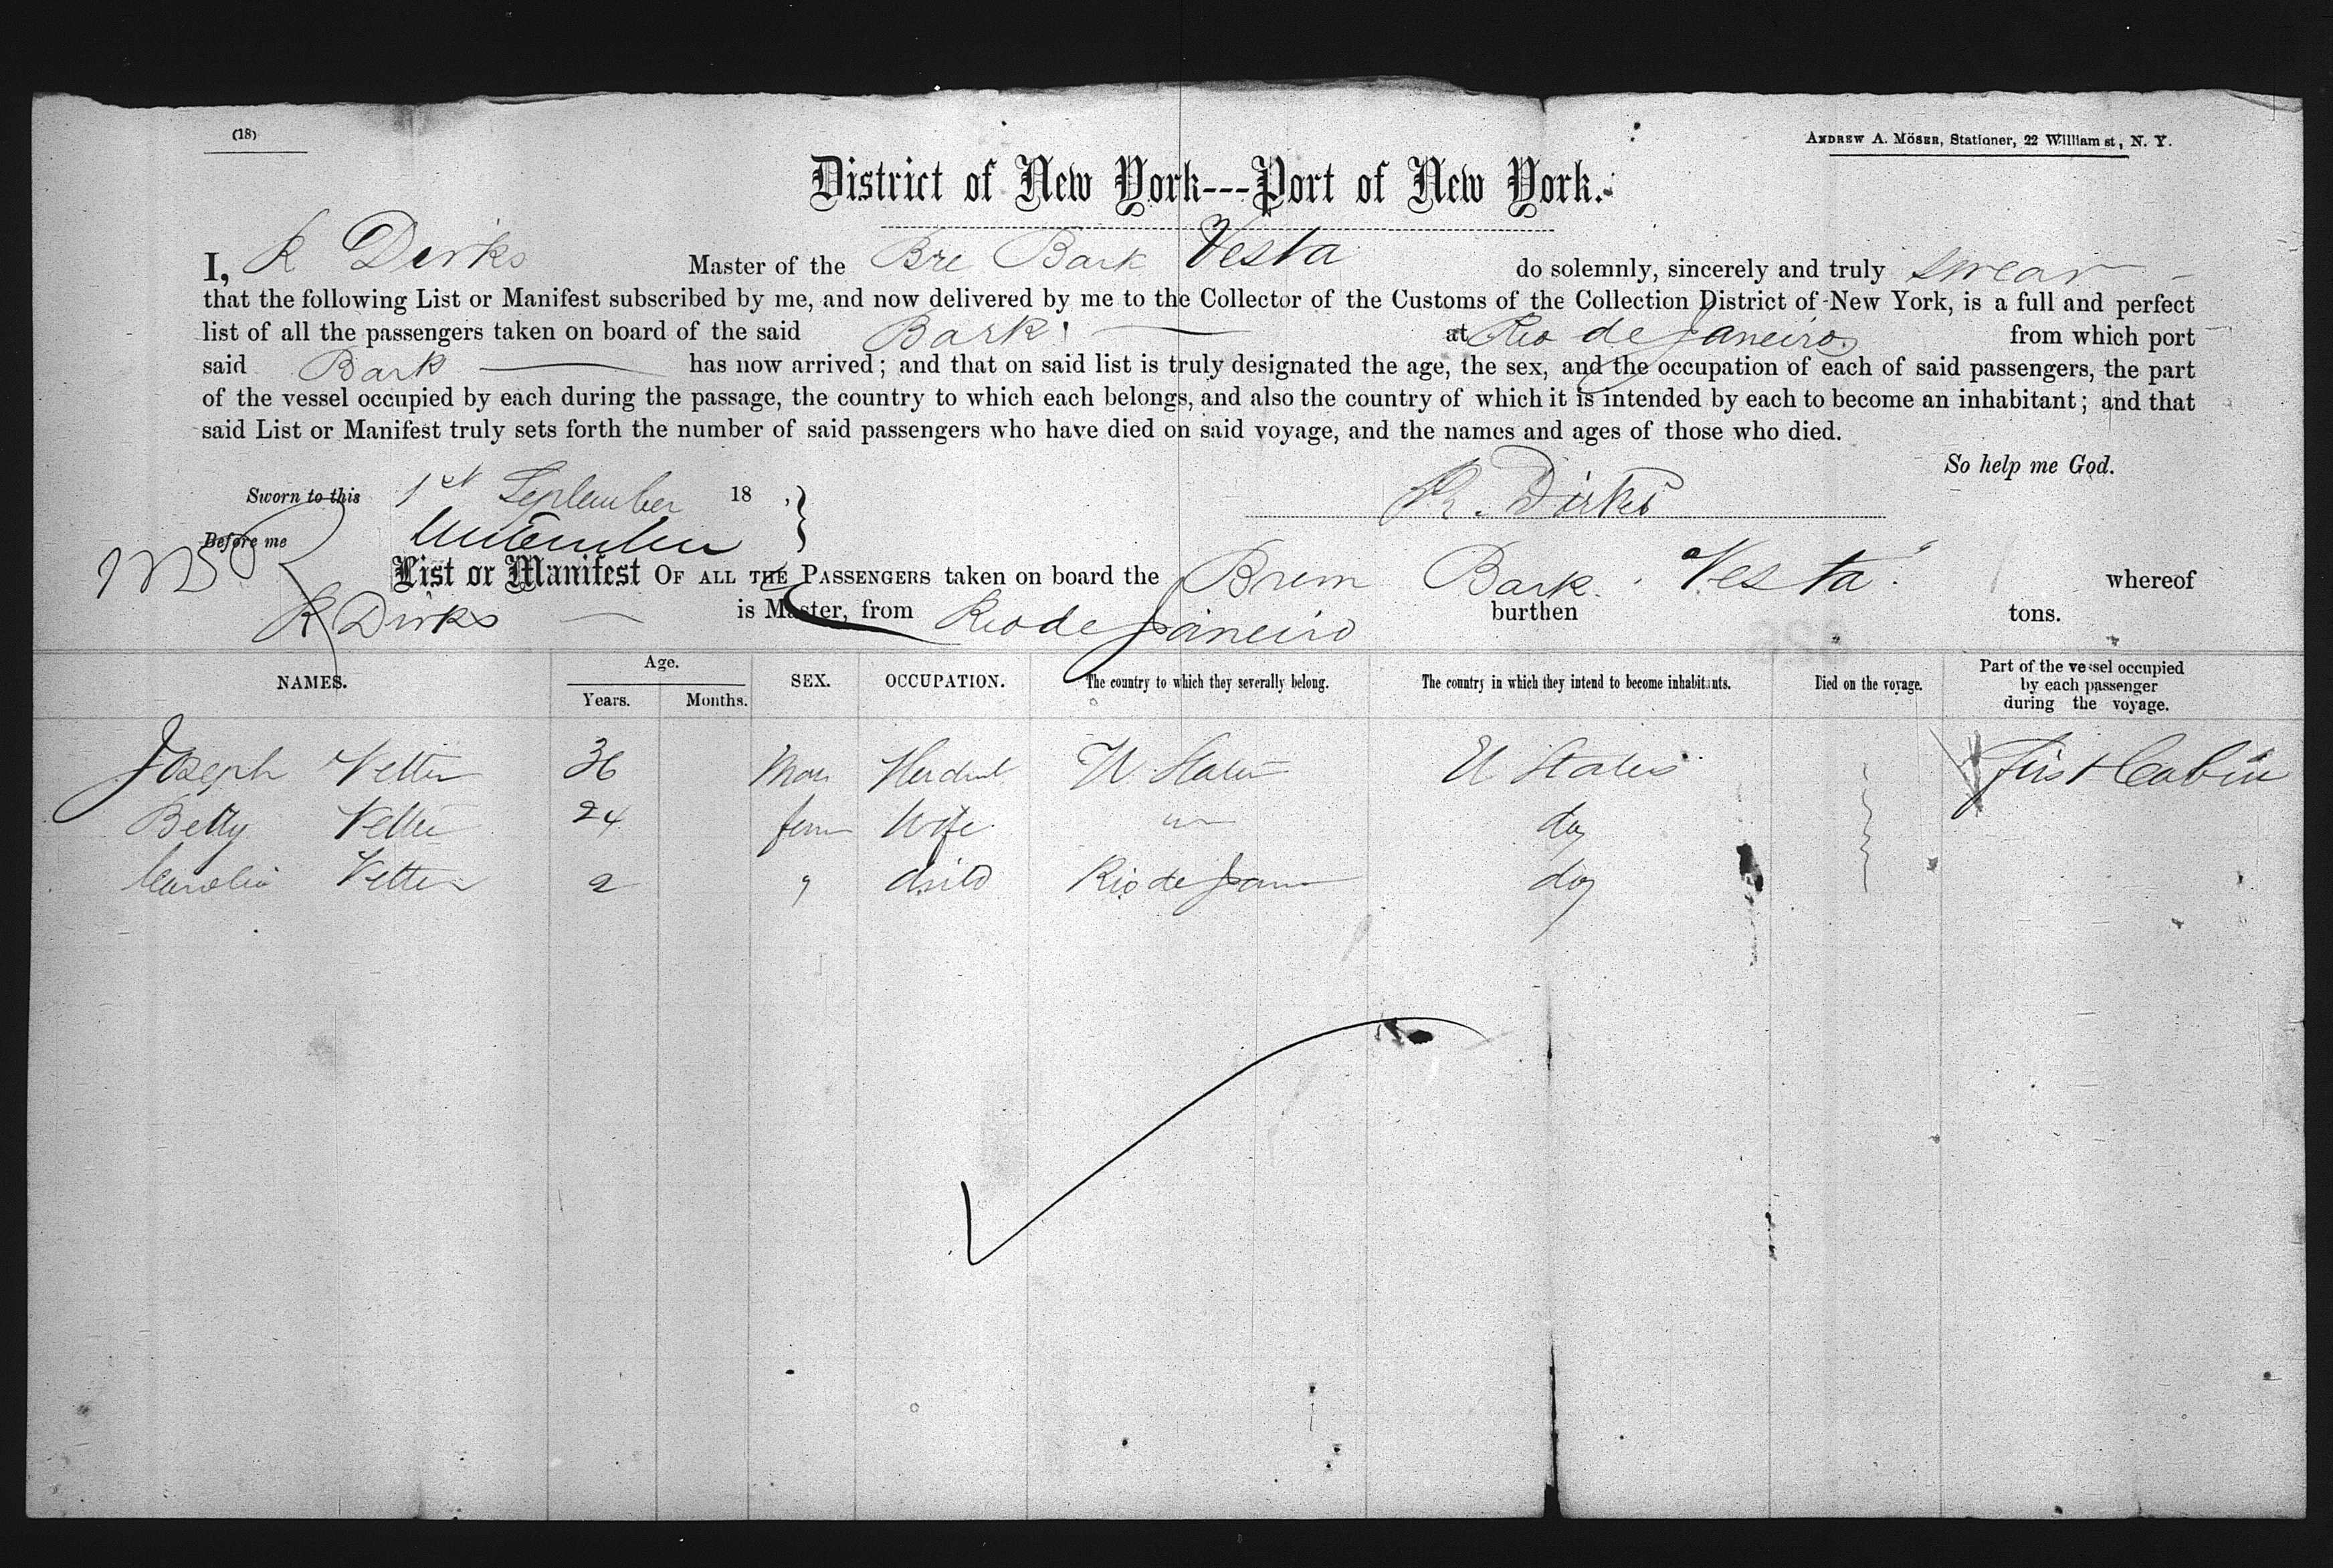 (18)
ANDREW A. MÖSER, Stationer, 22 William st, N. Y.
District of New York---Port of New York.
I, R Dirks Master of the Bre Bark Vesta do solemnly, sincerely and truly swear
that the following List or Manifest subscribed by me, and now delivered by me to the Collector of the Customs of the Collection District of New York, is a full and perfect
list of all the passengers taken on board of the said Bark at Rio de Janeiro from which port
said Bark has now arrived; and that on said list is truly designated the age, the sex, and the occupation of each of said passengers, the part
of the vessel occupied by each during the passage, the country to which each belongs, and also the country of which it is intended by each to become an inhabitant; and that
said List or Manifest truly sets forth the number of said passengers who have died on said voyage, and the names and ages of those who died.
So help me God.
Sworn to this 1st September 18 ,}
R. Dirks
Before me
List or Manifest OF ALL THE PASSENGERS taken on board the Brem Bark "Vesta" whereof
R Dirks is Master, from Rio de Janeiro burthen tons.
NAMES. Age. Years. Months. SEX. OCCUPATION. The country to which they severally belong. The country in which they intend to become inhabitants. Died on the voyage. Part of the vessel occupied by each passenger during the voyage.
Joseph Vetter 36 U. States U States First Cabin
Betty Vetter 24 fem Wife " do
Vetter 2 " child Rio de Jan do